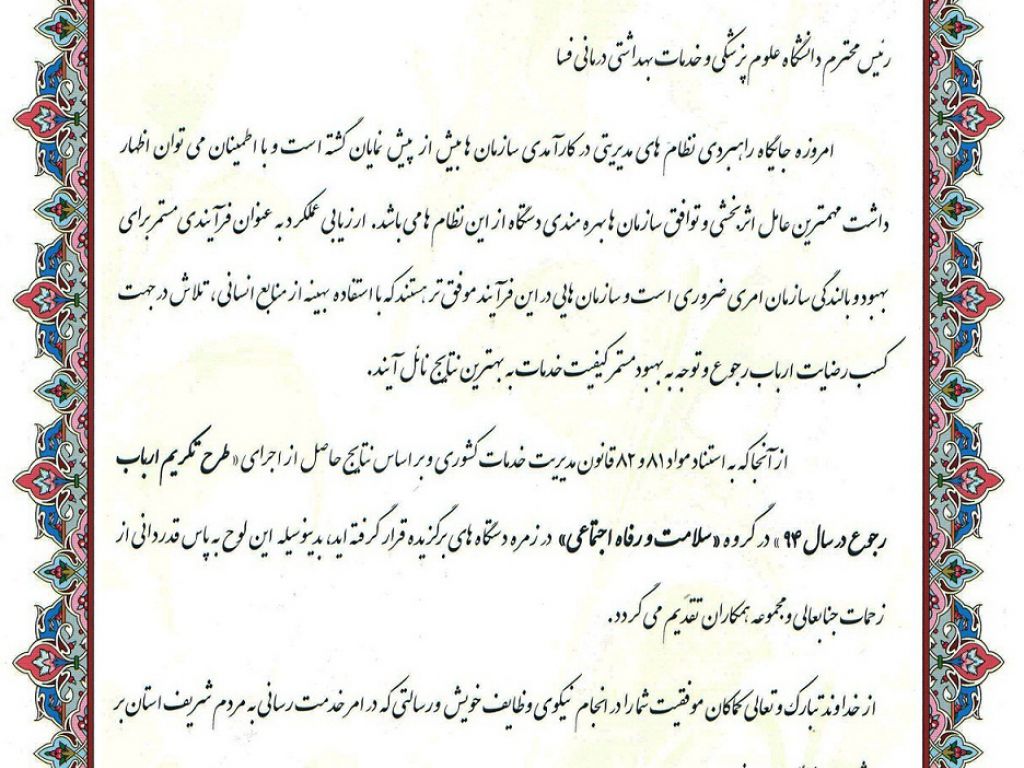 رئیس محترم دانشگاه علوم پزشکی و خدمات بهداشتی درمانی فسا
امروزه جایگاه راهبردی نظام های مدیریتی در کارآمدی سازمان ها بیش از پیش نمایان گشته است و با اطمینان می توان اظهار
داشت مهمترین عامل اثربخشی و توافق سازمان ها بهره مندی دستگاه از این نظام ها می باشد. ارزیابی عملکرد به عنوان فرآیندی مستمر برای
بهبود و بالندگی سازمان امری ضروری است و سازمان هایی در این فرآیند موفق تر هستند که با استفاده بهینه از منابع انسانی، تلاش در جهت
کسب رضایت ارباب رجوع و توجه به بهبود مستمر کیفیت خدمات به بهترین نتایج نائل آیند.
از آنجا که به استناد مواد ۸۱ و ۸۲ قانون مدیریت خدمات کشوری و بر اساس نتایج حاصل از اجرای «طرح تکریم ارباب
رجوع در سال ۹۴» در گروه «سلامت و رفاه اجتماعی» در زمره دستگاه های برگزیده قرار گرفته اید، بدینوسیله این لوح به پاس قدردانی از
زحمات جنابعالی و مجموعه همکاران تقدیم می گردد.
از خداوند تبارک و تعالی کماکان موفقیت شما را در انجام نیکوی وظایف خویش و رسالتی که در امر خدمت رسانی به مردم شریف استان بر